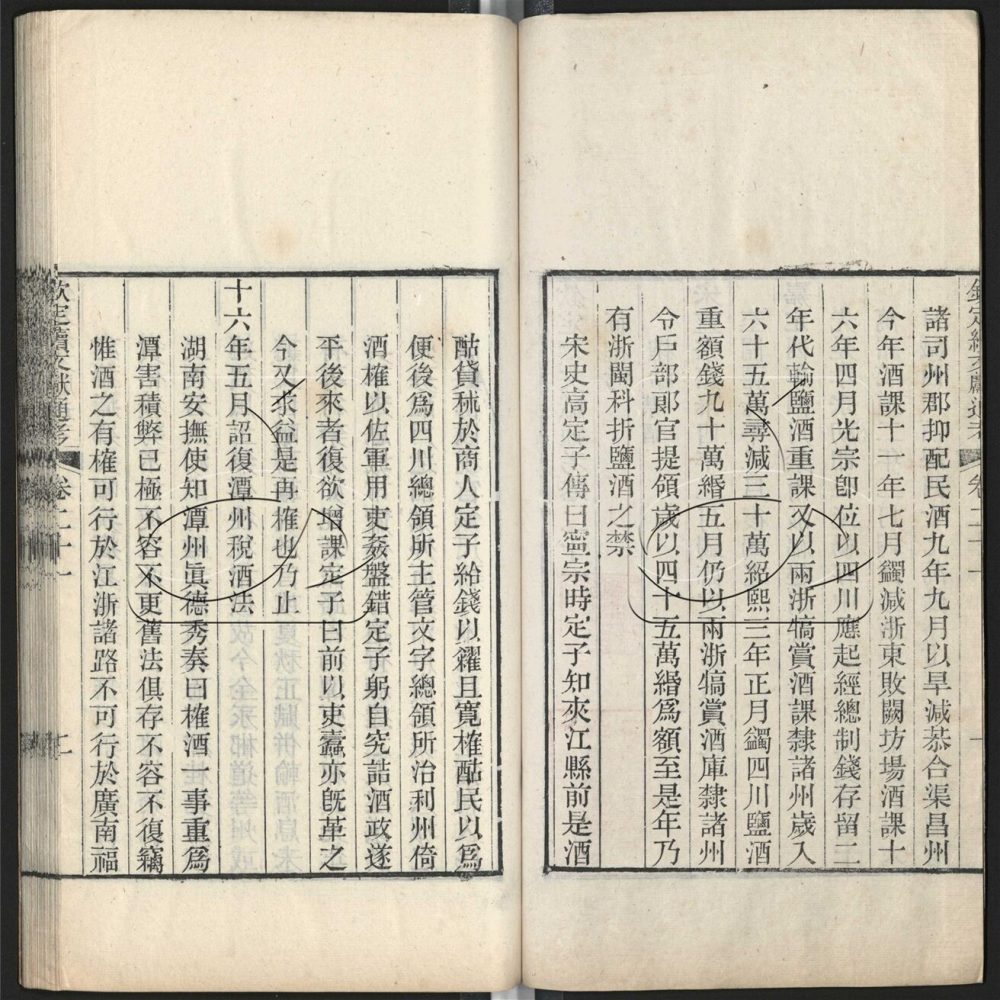 諸司州郡抑配民酒九年九月以旱減恭合渠昌州
今年酒課十一年七月蠲減浙東敗闕坊場酒課十
六年四月光宗卽位以四川應起經總制錢存留二
年代輸鹽酒重課又以兩浙犒賞酒課隸諸州歲入
六十五萬尋減三十萬紹熙三年正月蠲四川鹽酒
重額錢九十萬緡五月仍以兩浙犒賞酒庫隸諸州
令戶部郞官提領歲以四十五萬緡爲額至是年乃
有浙閩科折鹽酒之禁
宋史高定子傳曰寧宗時定子知夾江縣前是酒
酤貸秫於商人定子給錢以糴且寬榷酤民以爲
便後爲四川總領所主管文字總領所治利州倚
酒榷以佐軍用吏姦盤錯定子躬自究詰酒政遂
平後來者復欲增課定子曰前以吏蠹亦旣革之
今又求益是再榷也乃止
十六年五月詔復潭州稅酒法
湖南安撫使知潭州眞德秀奏曰榷酒一事重爲
潭害積弊已極不容不更舊法俱存不容不復竊
惟酒之有榷可行於江浙諸路不可行於廣南福
欽定續文獻通考 卷二十一